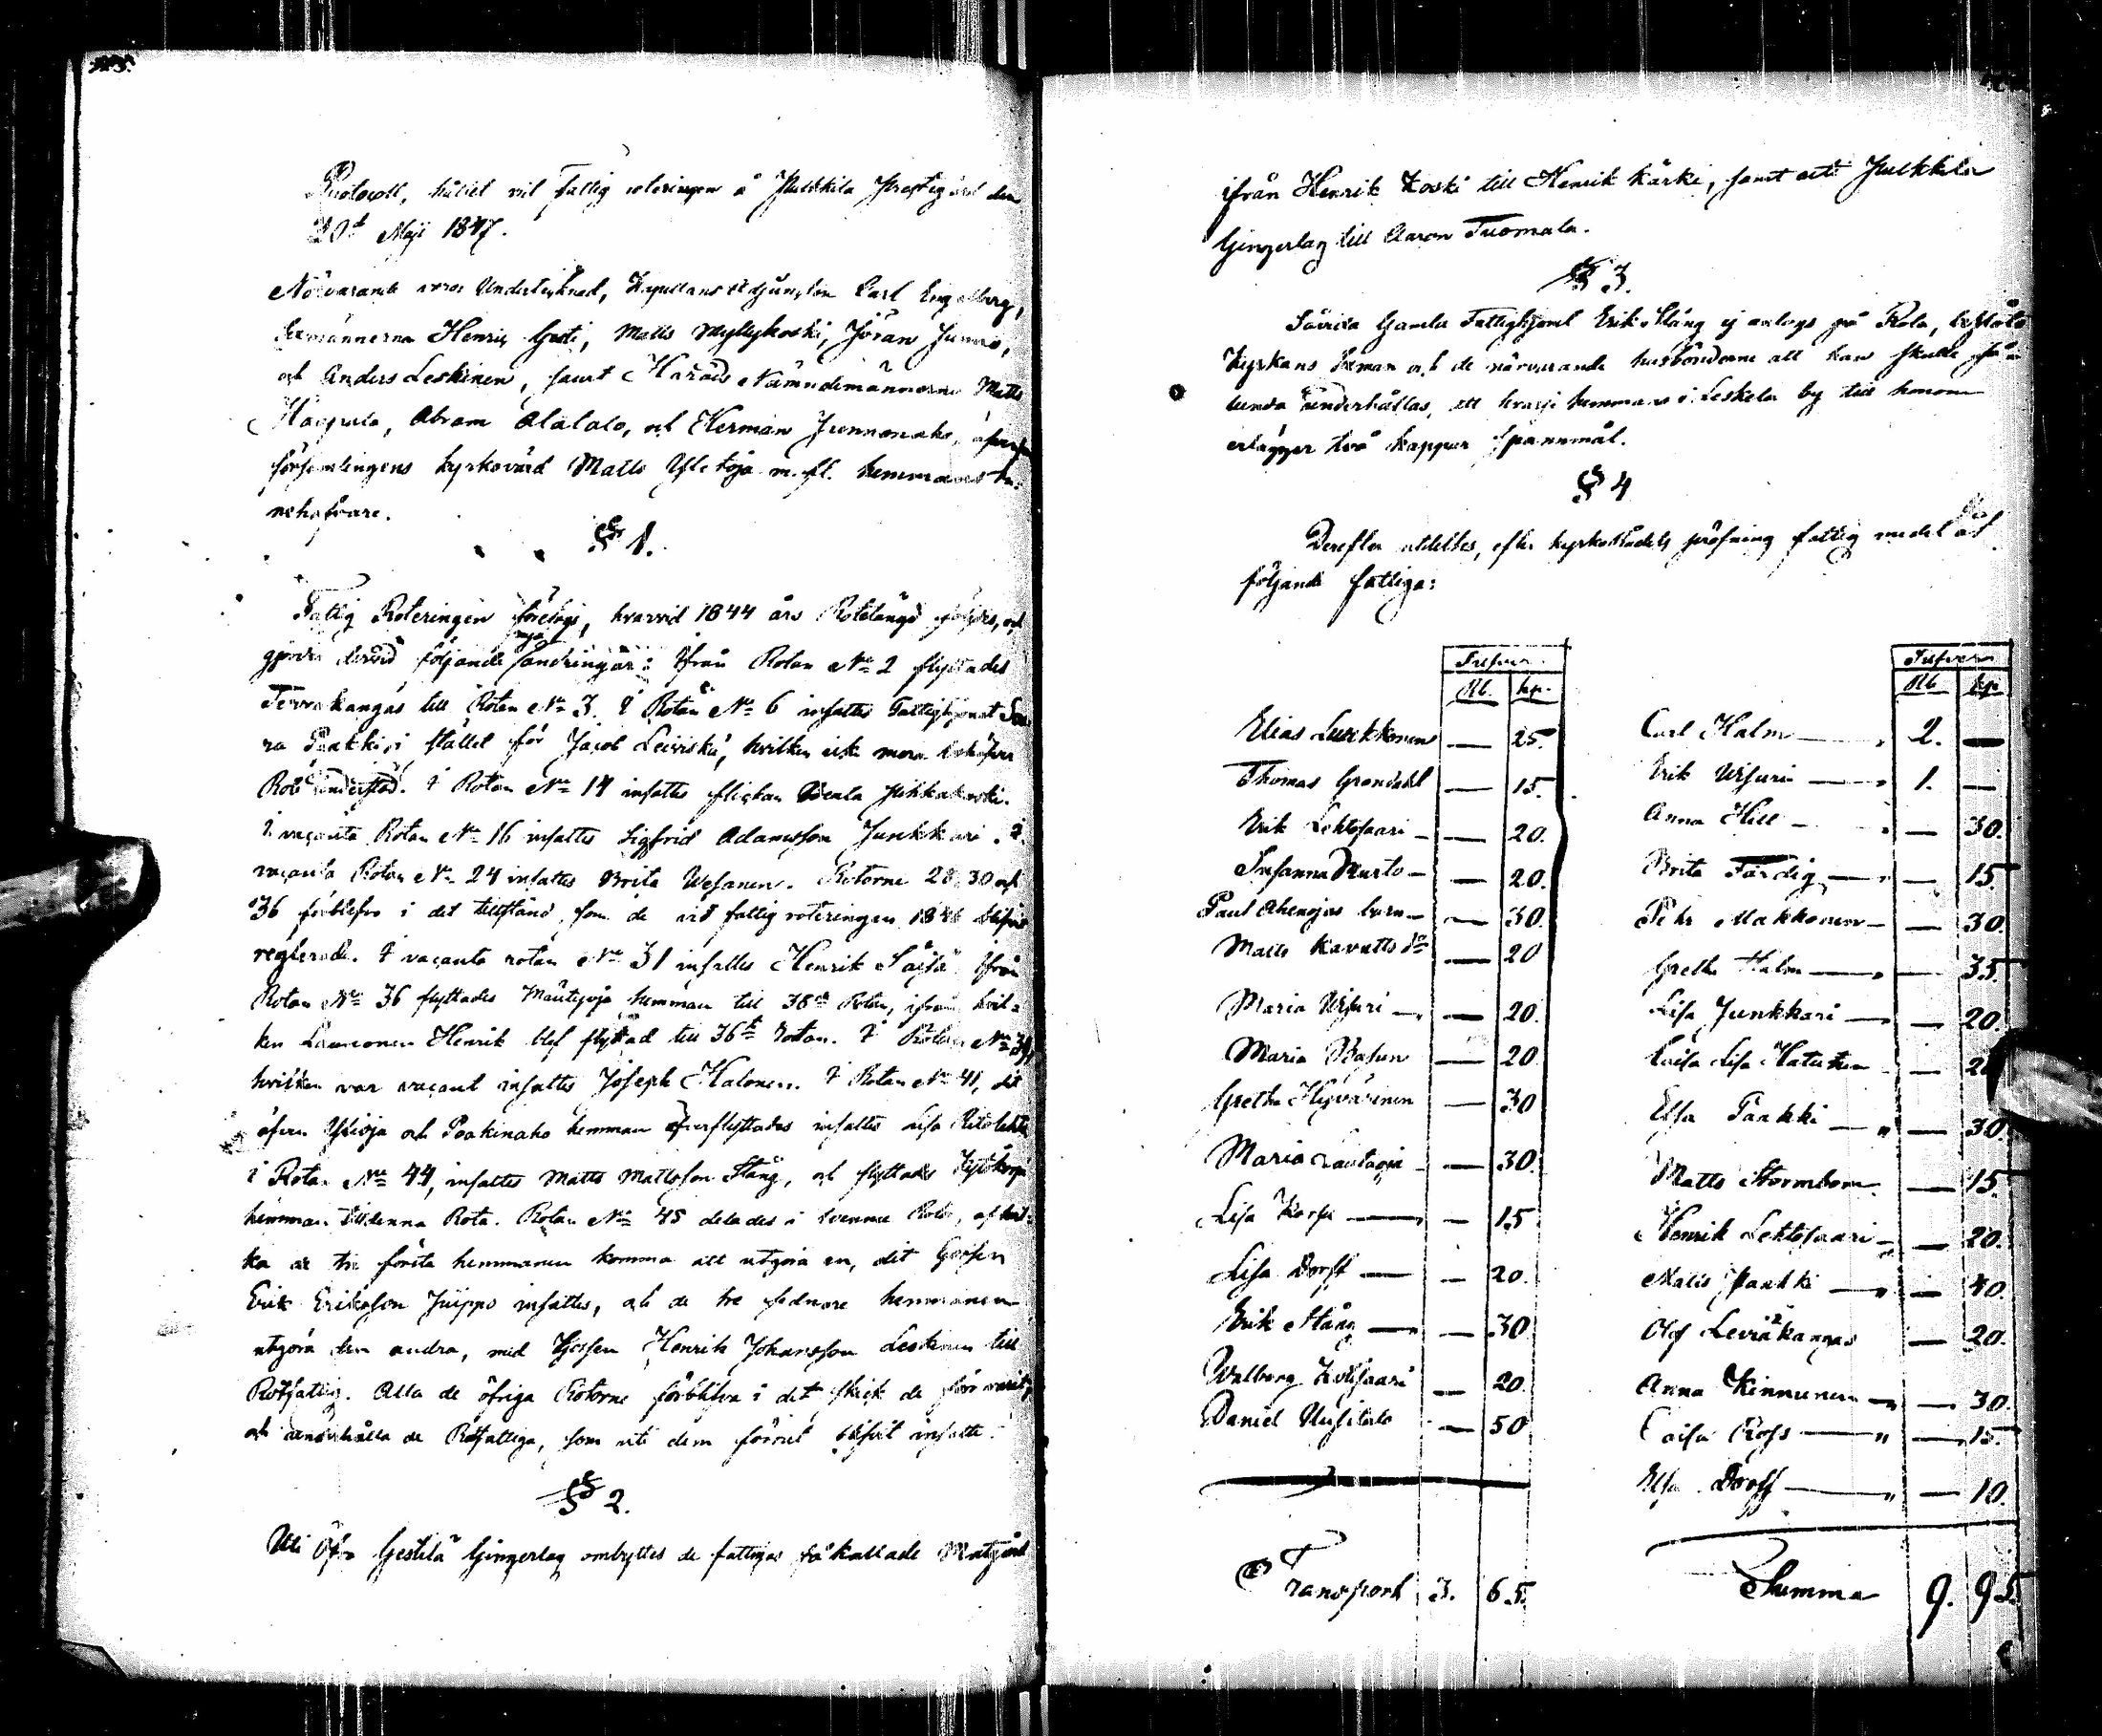 Protocoll, hållet vid Fattig roteringen å Pulkkila Prestegård den
20de Maji 1847.
Närvarande voro Undertecknad, Kapellans Adjuncten Carl Engelberg,
Sexmännerna Henric Gesti, Matts Myllykoski, Jöran Junno,
och Anders Leskinen, samt Härads Nämndemännerne Matts
Haapala, Abram Alatalo, och Herman Junnonaho, äfven
församlingens kyrkovärd Matts Yletoja m. fl. hemmans in-
nehafvare.
§ 1.
Fattig Roteringen företogs, hvarvid 1844 års Rotelängd följdes, och
gjordes dervid följande nya ändringar: Ifrån Rotan No 2 flyttades
Tervakangas till Rotan No 3. I Rotan No 6 insattes Fattighjonet Sa-
ra Paakki, i stället för Jacob Leiviskä, hvilken icke mera behöfver
Rote understöd. I Rotan No 14 insattes flickan
I vacanta Rotan No 16 insattes Sigfrid Adamsson Junkkari. I
vacanta Rotan No 24 insattes Brita Wesanen. Rotorne 28, 30 och
36 förblefvo i det tillstånd, som de vid fattig roteringen blifvit
reglerade. I vacanta rotan No 31 insattes Henrik Ifrån
Rotan No 36 flyttades hemman till 38de Rotan, ifrån hvil-
ken Henrik blef flyttad till 36te Rotan. I Rotan No
hvilken var vacant insattes Joseph Halonen. I Rotan No 41, dit
äfven Ylioja och Poakinaho hemman öfverflyttades insattes Lisa
i Rotan No 44, insattes Matts Mattsson Stång, och flyttades
hemman till denna Rota. Rotan No 45 delades i tvenne Rotor, af hvil-
ka de tre första hemmanen komma att utgöra en, dit Gossen
Erik Eriksson Juippo insattes, och de tre sednare hemmanen
utgöra den andra, med Gossen Henrik Johansson Leskinen till
Rotfattig. Alla de öfriga Rotorne förblifva i det skick de förr varit,
och underhålla de Rotfattiga, som uti dem förut blifvit insatte.
§ 2.
Uti Öfre Gestilä Gingerlag ombyttes de fattigas så kallade Matgård
ifrån Henrik Koski till Henrik Kärki, samt uti Pulkkila
Gingerlag till Aaron Tuomala.
§ 3.
Såvida Gamla Fattighjonet Erik Stång ej antogs på Rota, beslöts
Kyrkans Sexman och de närvarande husbönderne att han skulle så-
lunda underhållas, att hvarje hemman i Leskelä by till honom
erlägger två kappar spannmål.
§ 4
Derefter utdeltes, efter kyrkoRådets pröfning fattig medel åt
följande fattiga:
Silfver.
Rb. kp.
Elias Luukkonen — 25.
Thomas Grondahl — 15.
Erik Lehtosaari — 20.
Susanna Murto — 20.
Paul Ahenojas barn — 30.
Matts Kavatts do — 20
Maria Wisuri — 20.
Maria — 20
Greth Hyvärinen — 30
Maria Rautaoja — 30.
Lisa Korpi — 15
Lisa Dorff — 20.
Erik Stång — 30
Walborg Kotisaari — 20.
Daniel Uusitalo — 50
Transport 3. 65.
Silfver
Rb kp
Carl Halm 2. —
Erik Wisuri 1. —
Anna Hill — 30.
Brita Färdig — 15
Pehr Makkonen — 30.
Greth Halm — 35.
Lisa Junkkari — 20
Caisa Lisa Hatunen — 2
Elsa Paakki — 30.
Matts Stormbom — 15.
Henrik Lehtosaari — 20.
Matts Paakki — 40.
Olof Leviäkangas — 20.
Anna Kinnunen — 30.
Caisa Ross — 15.
Elsa Dorff — 10.
Summa 9. 95